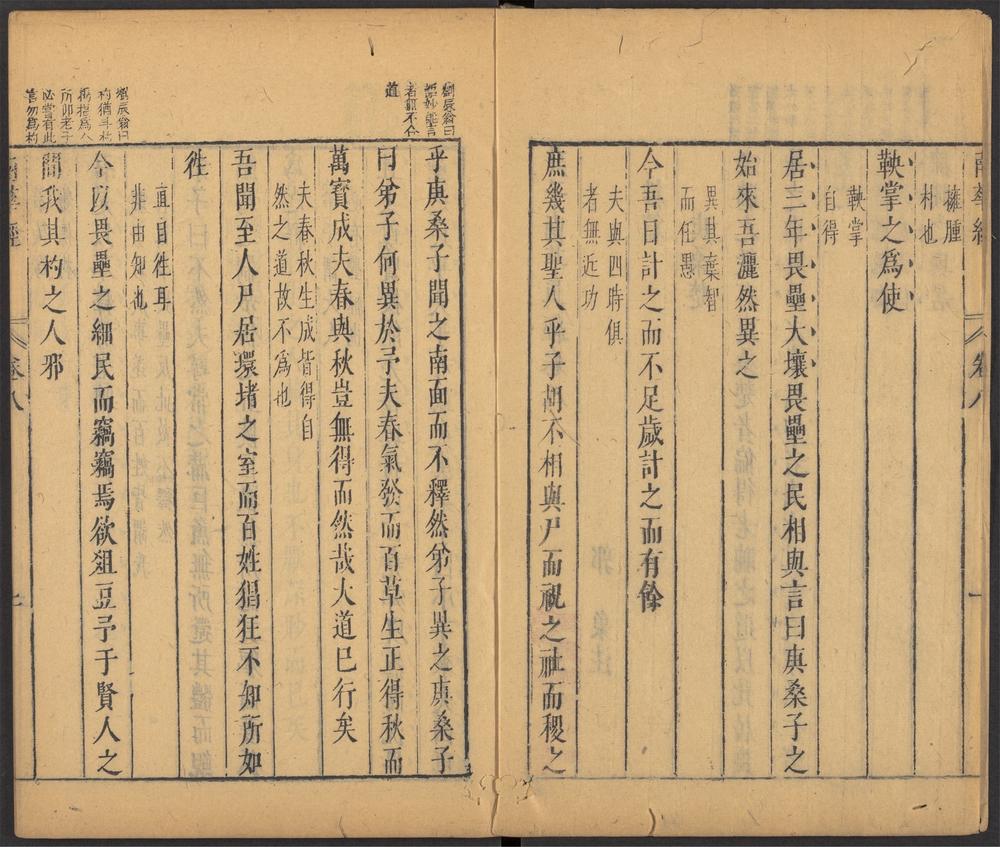 南華經
卷八
一
擁腫
朴也
鞅掌之爲使
鞅掌
自得
居三年畏壘大壤畏壘之民相與言曰庚桑子之
始來吾灑然異之
異其棄智
而任愚
今吾日計之而不足歲計之而有餘
夫與四時俱
者無近功
庶幾其聖人乎子胡不相與尸而祝之社而稷之
劉辰翁曰
道
乎庚桑子聞之南面而不釋然弟子異之庚桑子
曰弟子何異於予夫春氣發而百草生正得秋而
萬寶成夫春與秋豈無得而然哉大道已行矣
夫春秋生成皆得自
然之道故不爲也
吾聞至人尸居環堵之室而百姓猖狂不知所如
徃
直自徃耳
非由知也
今以畏壘之細民而竊竊焉欲俎豆予于賢人之
間我其杓之人邪
劉辰翁曰
杓猶斗杓
所卽老子
必嘗有此
言勿爲杓
南華經
卷八